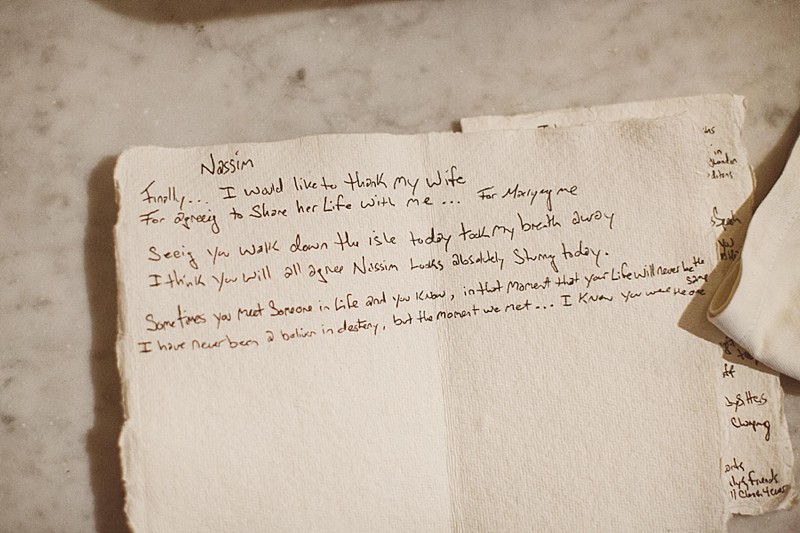 Nassim
Finally... I would like to thank my wife
For agreeig to Share her Life with me ... For Marryng me
Seeig you walk down the isle today took my breath away
I think you will all agree Nassim Looks absolutely Stunng today.
Sometimes you meet Someone in Life and you know, in that Moment that your Life will never be the same
I have never been a beliver in destiny, but the moment we met... I Knew you were the one
in
off
friends